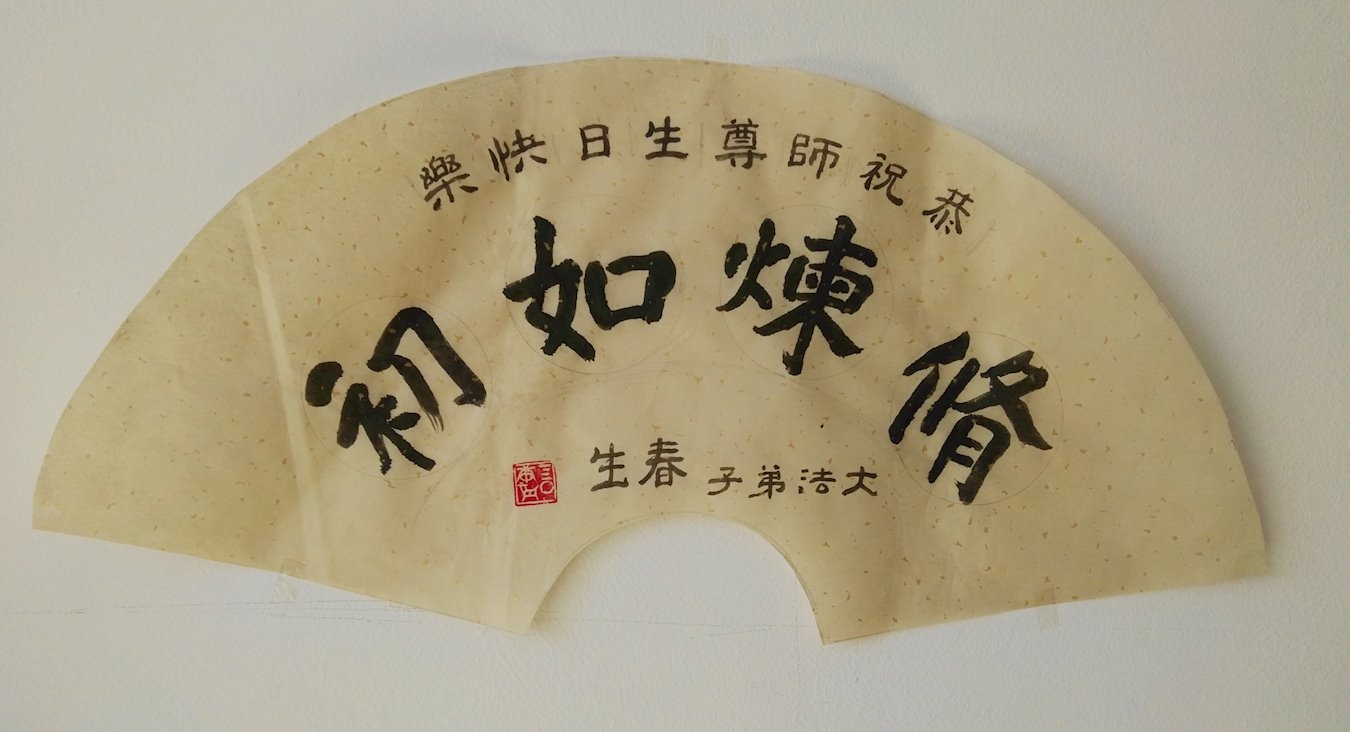 恭祝師尊生日快樂
脩煉如初
大法弟子春生